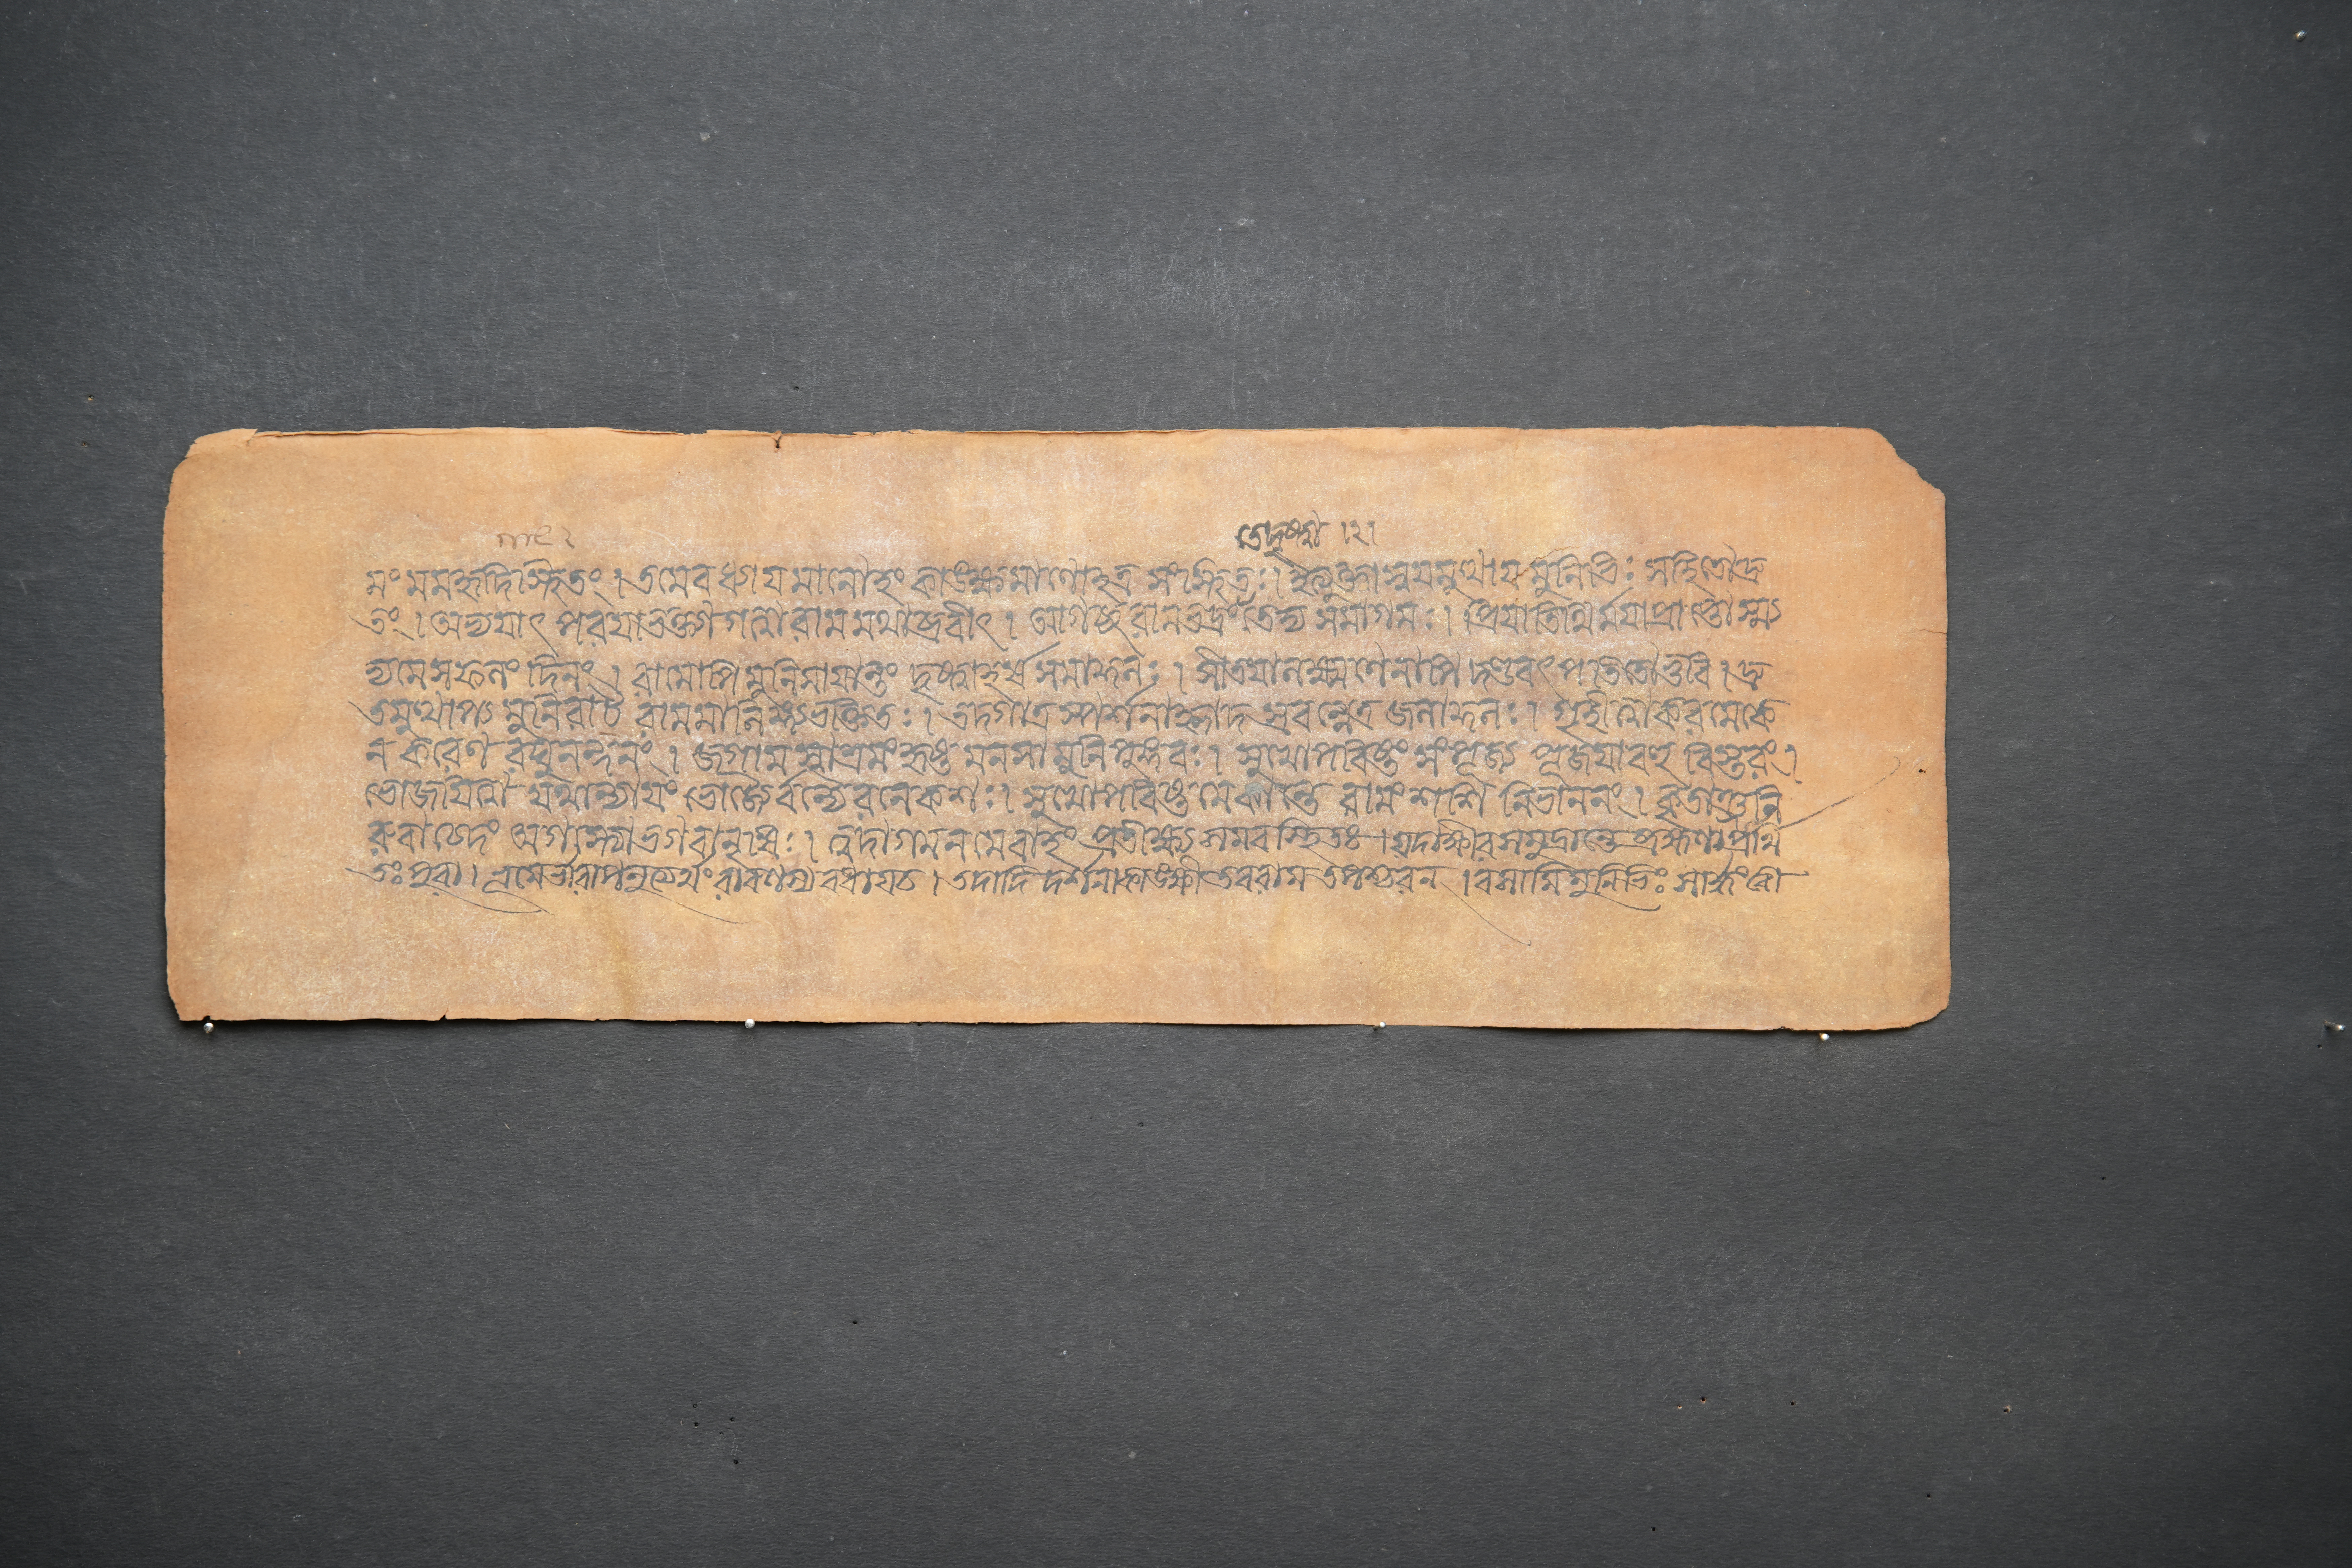 তেদৃষ্ট্যা ।২।
মং মমহৃদিস্থিতং । তমেব ধ্যায়মানোহং কাঙ্ক্ষমাণোহত্র সংস্থিতঃ । ইত্যুক্ত্বাস্বয়মুত্থায়মুনিভিঃ সহিতোদ্রু
তং । অভ্যয়াৎ পরয়াভক্ত্যা গত্বারামমথাব্রবীৎ । আগচ্ছ রামভদ্রং তেদ্য সমাগমঃ । প্রিয়াতিথির্ময়াপ্রাপ্তোস্ম্য
দ্যমেসফলং দিনং । রামোপি মুনিমায়ান্তং দৃষ্ট্বাহর্ষসমাকুলঃ । সীতয়ালক্ষ্মণেনাপি দণ্ডবৎ পতিতোভুবি । দ্রু
তমুত্থাপ্য মুনিরাট্ রামমালিঙ্গ্যভক্তিতঃ । তদ্গাত্রস্পর্শনাহ্লাদ স্রবন্নেত্রজলাকুলঃ । গৃহীত্বা করমেকে
ন করেণ রঘুনন্দনং । জগাম স্বাশ্রমং হৃষ্ট মনসামুনিপুঙ্গবঃ । সুখোপবিষ্টং সংপূজ্য পূজয়াবহু বিস্তরং ।
ভোজয়িত্বা যথান্যায়ং ভোজ্যৈর্বন্যৈরনেকশঃ । সুখোপবিষ্টমেকান্তে রামং শশি নিভাননং । কৃতাঞ্জলি
রুবাচেদং অগস্ত্যোভগবানৃষিঃ । ত্বদাগমনমেবাহং প্রতীক্ষ্য সমবস্থিতঃ । যদাক্ষীরসমুদ্রান্তে ব্রহ্মণাপ্রার্থি
তঃ পুরা । ভূমের্ভারাপনুত্ত্যর্থং রাবণস্য বধায়চ । তদাদি দর্শনাকাঙ্ক্ষী তবরাম তপশ্চরন । বসামিমুনিভিঃ সার্দ্ধং ত্বা